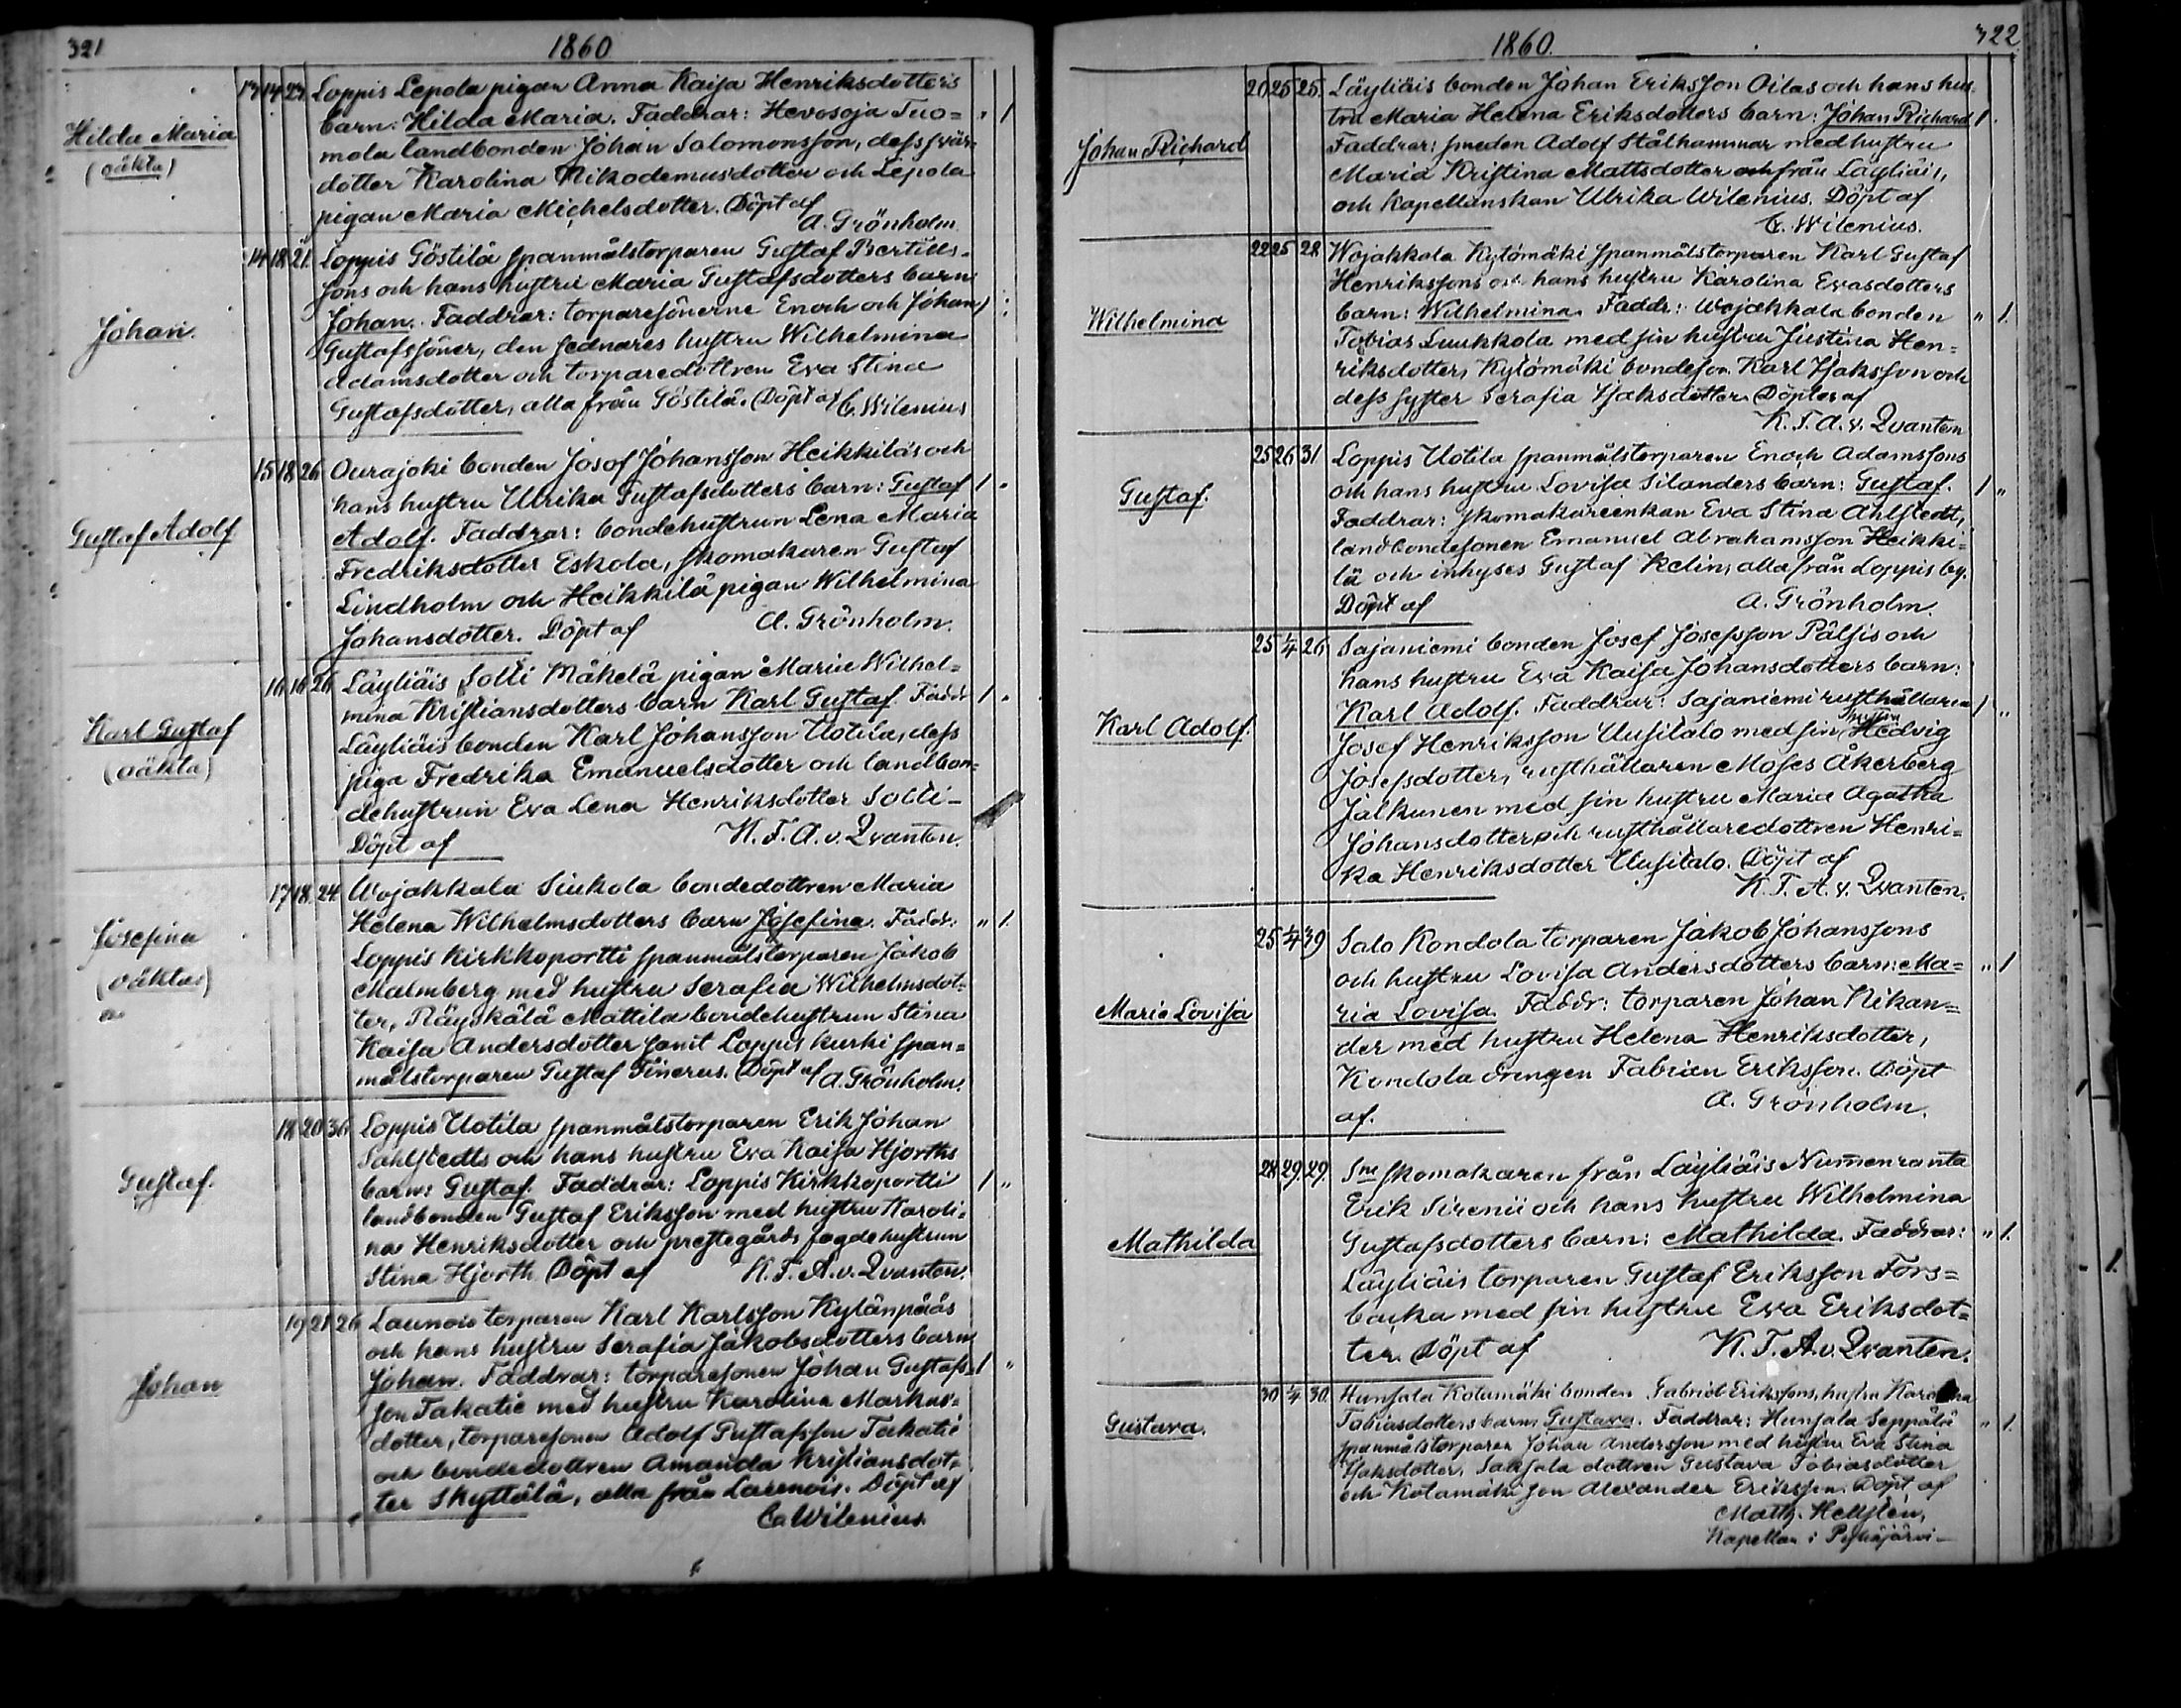 321
1860
Hilda Maria
(oäkta)
13 14 23 Loppis Lepola pigan Anna Kaisa Henriksdotters
barn: Hilda Maria. Faddrar: Hevosoja Tuo= " 1
mola landbonden Johan Salomonsson, dess svär=
dotter Karolina Nikodemusdotter och Lepola
pigan Maria Michelsdotter. Döpt af
A. Grönholm
Johan.
14 18 21. Loppis Göstilä spanmålstorparen Gustaf Bertills=
sons och hans hustru Maria Gustafsdotters barn
Johan. Faddrar: torparesönerne Enoch och Johan
Gustafssöner, den sednares hustru Wilhelmina
Adamsdotter och torparedottren Eva Stina
Gustafsdotter, alla från Göstilä. Döpt af C. Wilenius
Gustaf Adolf
15 18 26 Ourajoki bonden Josef Johansson Heikkiläs och
hans hustru Ulrika Gustafsdotters barn: Gustaf 1 "
Adolf. Faddrar: bondehustrun Lena Maria
Fredriksdotter Eskola, skomakaren Gustaf
Lindholm och Heikkilä pigan Wilhelmina
Johansdotter. Döpt af A. Grönholm.
Karl Gustaf
(oäkta)
16 16 26 Läyliäis Solli Mäkelä pigan Maria Wilhel=
mina Kristiansdotters barn Karl Gustaf. Faddr 1 "
Läyliäis bonden Karl Johansson Uotila, dess
piga Fredrika Emanuelsdotter och landbon=
dehustrun Eva Lena Henriksdotter Solli-
Döpt af K. F. A. v. Qvanten.
Josefina
(oäkta)
17 18 24 Wojakkala Siukola bondedottren Maria
Helena Wilhelmsdotters barn Josefina. Faddr: " 1.
Loppis Kirkkoportti spanmålstorparen Jakob
Malmberg med hustru Serafia Wilhelmsdot=
ter, Räyskälä Mattila bondehustrun Stina
Kaisa Andersdotter samt Loppis Kurki span=
målstorparen Gustaf Finerus. Döpt af A. Grönholm.
Gustaf.
18 20 36 Loppis Uotila spanmålstorparen Erik Johan
Sahlstedts och hans hustru Eva Kaisa Hjorths
barn: Gustaf. Faddrar: Loppis Kirkkoportti 1 "
landbonden Gustaf Eriksson med hustru Karoli=
na Henriksdotter och prestegårds fogdehustrun
Stina Hjorth. Döpt af K. F. A. v. Qvanten.
Johan
19 21 26 Launois torparen Karl Karlsson Kylänpääs
och hans hustru Serafia Jakobsdotters barn
Johan. Faddrar: torparesonen Johan Gustafs= 1 "
son Takatie med hustru Karolina Markus=
dotter, torparesonen Adolf Gustafsson Takatie
och bondedottren Amanda Kristiansdot=
ter Skyttälä, alla från Launois. Döpt af
C. Wilenius.
1860.
322
Johan Richard
20 25 25. Läyliäis bonden Johan Eriksson Oilas och hans hus=
tru Maria Helena Eriksdotters barn: Johan Richard 1.
Faddrar: smeden Adolf Stålhammar med hustru
Maria Kristina Mattsdotter från Läyliäis,
och Kapellanskan Ulrika Wilenius. Döpt af
C. Wilenius.
Wilhelmina
22 25 28 Wojakkala Kylömäki spanmålstorparen Karl Gustaf
Henrikssons och hans hustru Karolina Evasdotters
barn: Wilhelmina. Faddr: Wojakkala bonden " 1.
Tobias Luukkola med sin hustru Justina Hen=
riksdotter, Kylömäki bondeson Karl Isaksson och
dess syster Serafia Isaksdotter. Döptes af
K. F. A. v. Qvanten
Gustaf.
25 26 31 Loppis Uotila spanmålstorparen Enoch Adamssons
och hans hustru Lovisa Silanders barn: Gustaf. 1 "
Faddrar: skomakareenkan Eva Stina Ahlstedt,
landbondesonen Emanuel Abrahamsson Heikki=
lä och inhyses Gustaf Relin, alla från Loppis by.
Döpt af A. Grönholm.
Karl Adolf.
25 1/4 26 Sajaniemi bonden Josef Josefsson Pälsis och
hans hustru Eva Kaisa Johansdotters barn:
Karl Adolf. Faddrar: Sajaniemi rusthållaren 1 "
Josef Henriksson Uusitalo med sin hustru Hedvig
Josefsdotter, rusthållaren Moses Åkerberg
Jalkunen med sin hustru Maria Agatha
Johansdotter och rusthållaredottren Henri=
ka Henriksdotter Uusitalo. Döpt af
K. F. A. v. Qvanten.
Maria Lovisa
25 1/4 39 Salo Kondola torparen Jakob Johanssons
och hustru Lovisa Andersdotters barn: Ma= " 1
ria Lovisa. Faddr: torparen Johan Nikan=
der med hustru Helena Henriksdotter,
Kondola drengen Fabian Eriksson. Döpt
af. A. Grönholm.
Mathilda
28 29. 29. Sne skomakaren från Läyliäis Nummenranta
Erik Sirenii och hans hustru Wilhelmina
Gustafsdotters barn: Mathilda. Faddrar: " 1.
Läyliäis torparen Gustaf Eriksson Fors=
backa med sin hustru Eva Eriksdot=
ter. Döpt af K. F. A. v. Qvanten.
Gustava.
30 1/4 30. Hunsala Kotamäki bonden Gabriel Erikssons, hustru Karolina
Tobiasdotters barn: Gustava. Faddrar: Hunsala Seppälä " 1.
spanmålstorparen Johan Andersson med hustru Eva Stina
Isaksdotter, Saksala dottren Gustava Tobiasdotter
och Kotamäki son Alexander Eriksson. Döpt af
Math. Hellsten,
Kapellan i Pyhäjärvi-
1.